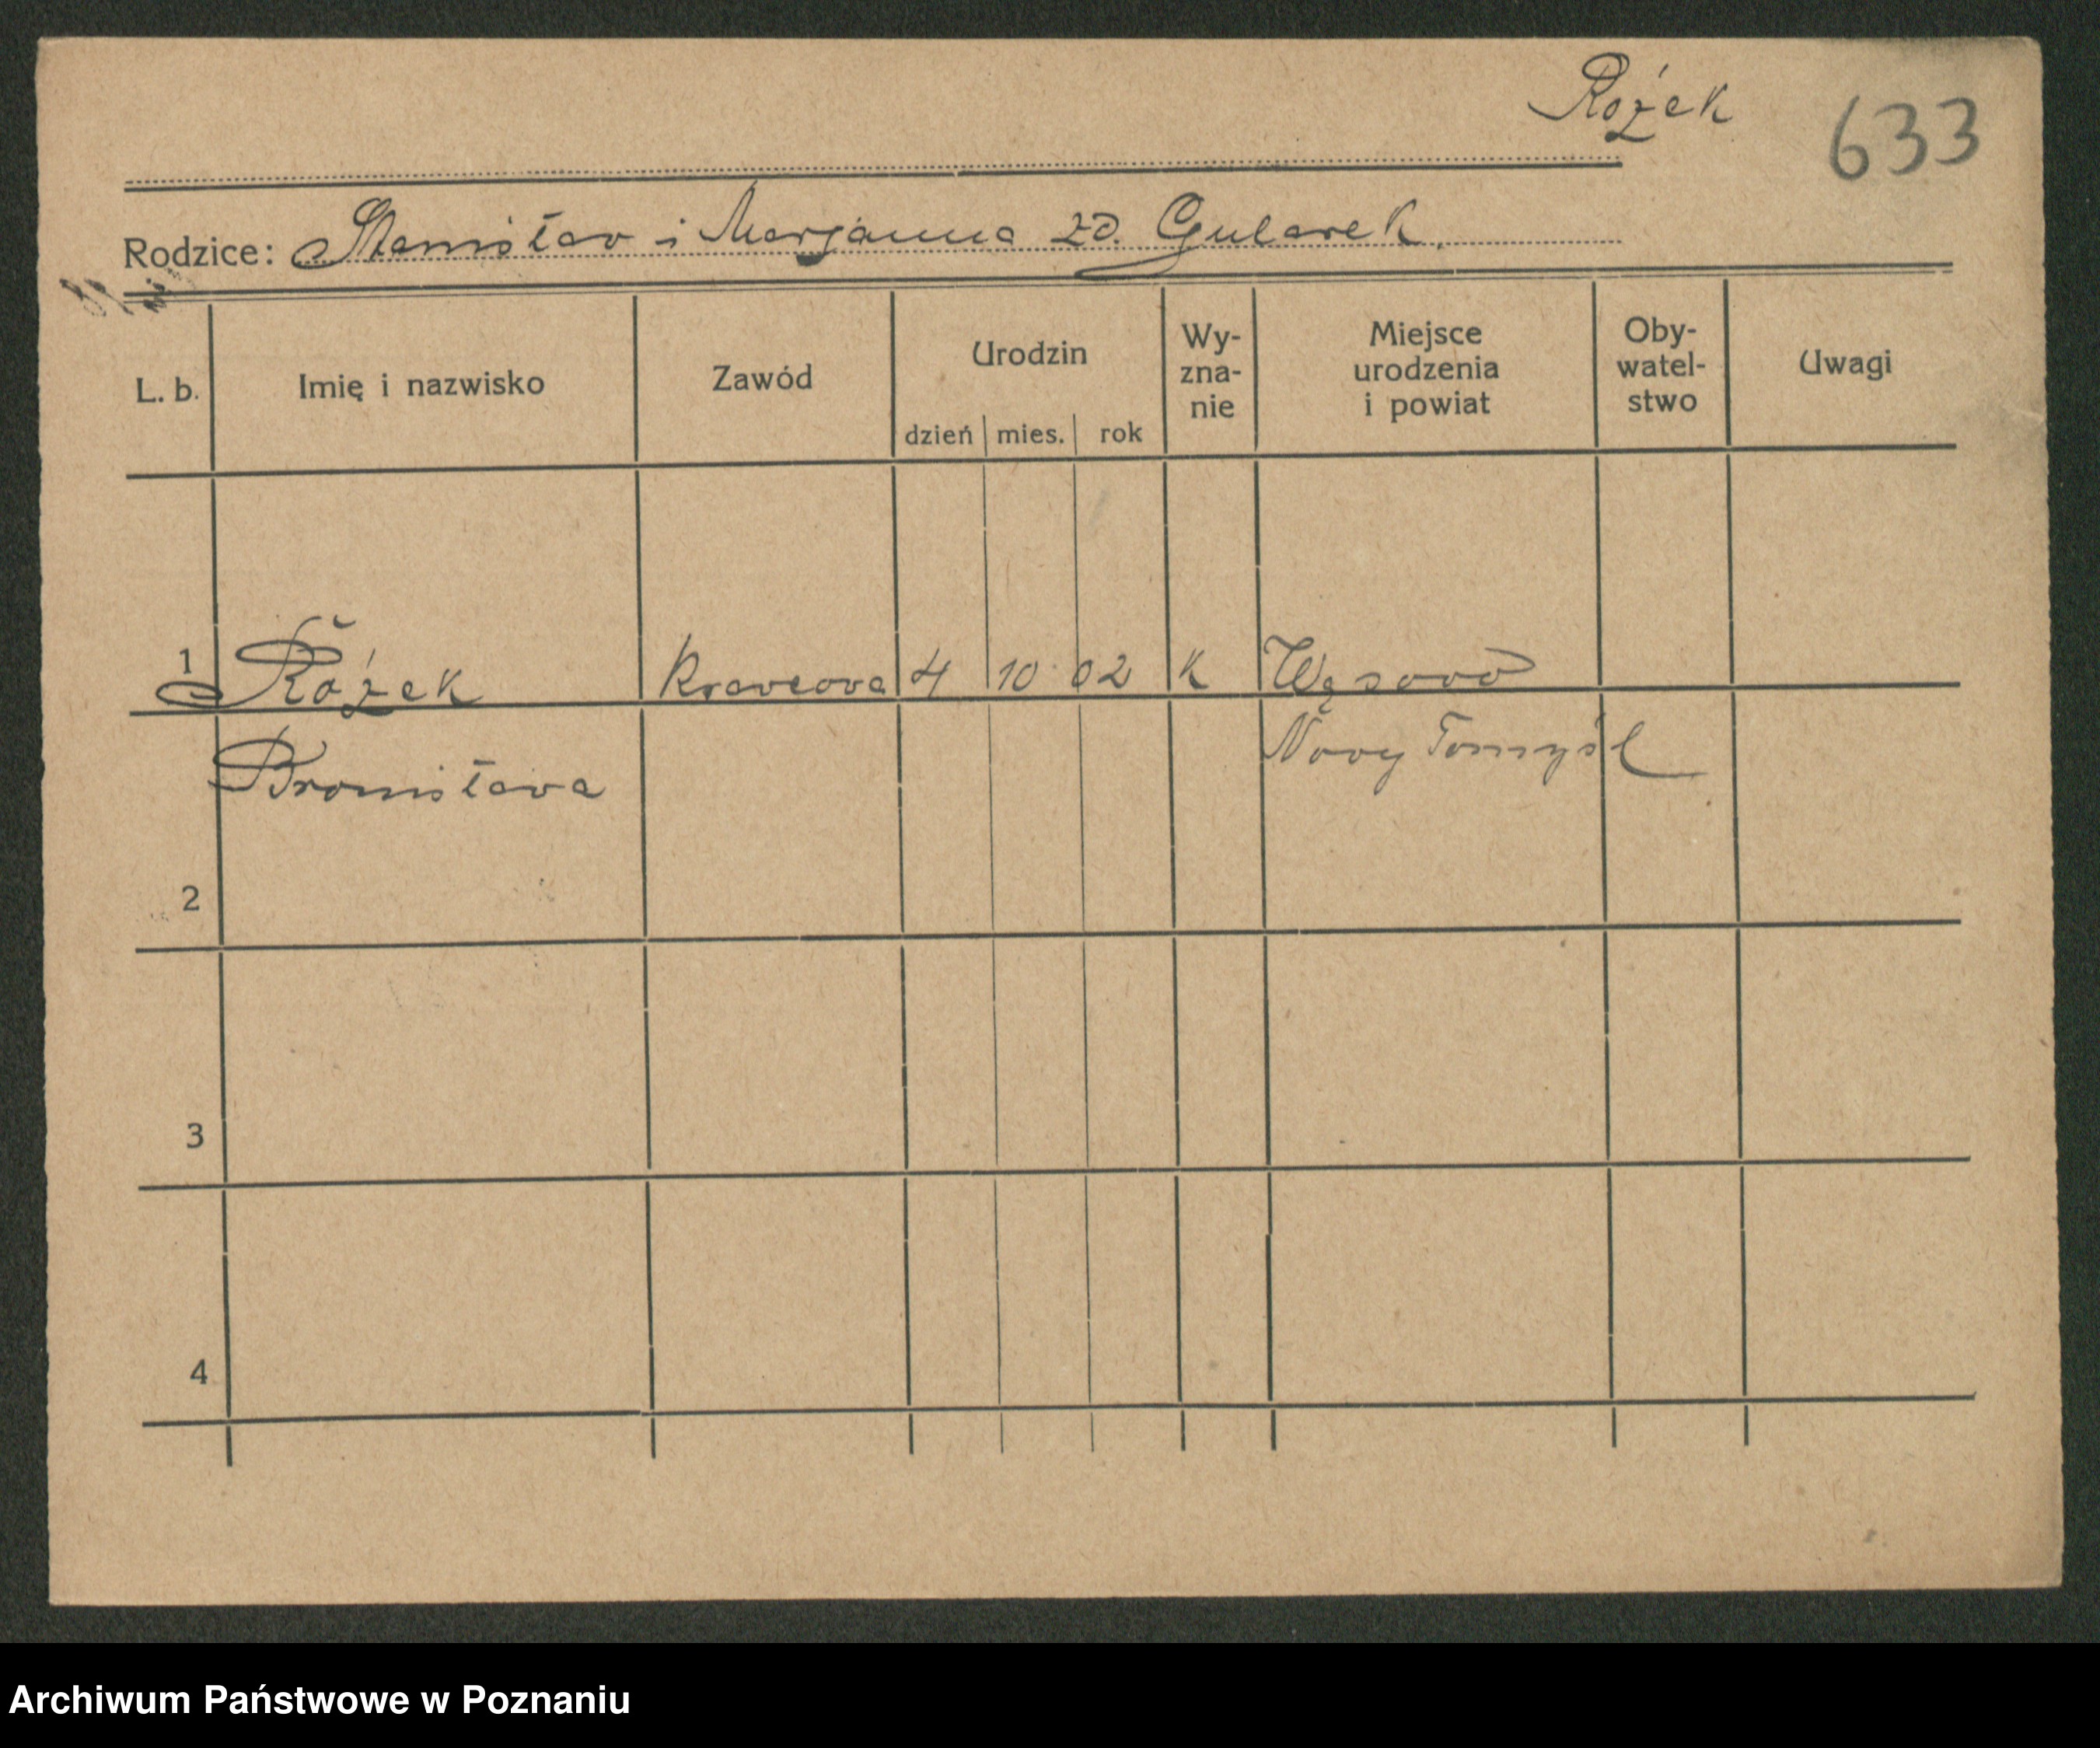 Rożek 633
Rodzice: Stanisław i Marjanna zd. Gularek.
L. b. Imię i nazwisko Zawód Urodzin dzień mies. rok Wy-zna-nie Miejsce urodzenia i powiat Oby-watel-stwo Uwagi
1 Rożek Krawcowa 4 10 02 K Wąsowo
Bronisława Nowy Tomyśl
2
3
4
Archiwum Państwowe w Poznaniu